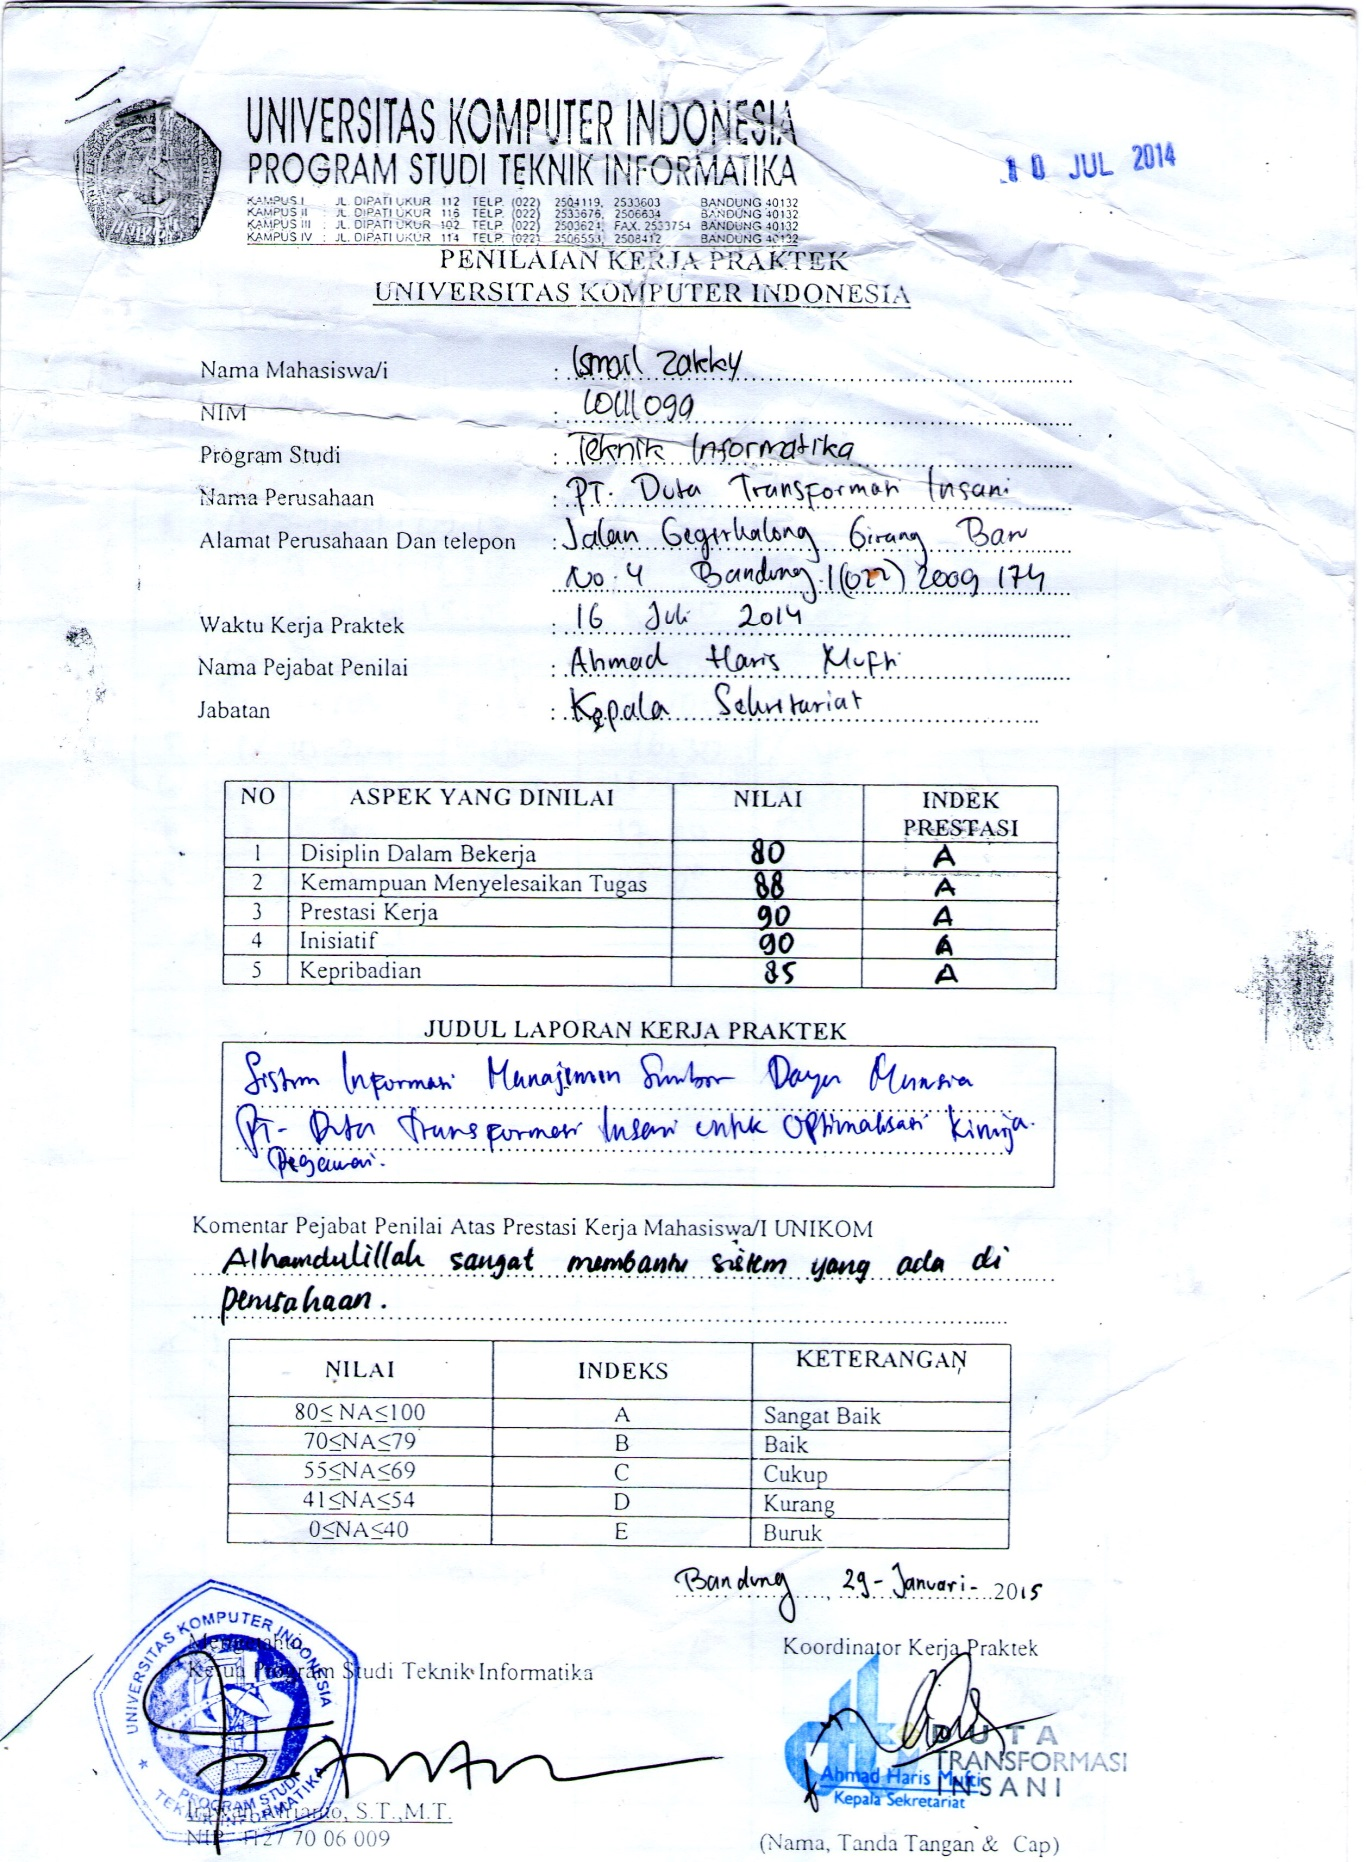 UNIVERSITAS KOMPUTER INDONESIA
PROGRAM STUDI TEKNIK INFORMATIKA
10 JUL 2014
KAMPUS I : JL. DIPATI UKUR 112 TELP. (022) 2504119, 2533603 BANDUNG 40132
KAMPUS II : JL. DIPATI UKUR 116 TELP. (022) 2533676, 2506634 BANDUNG 40132
KAMPUS III : JL. DIPATI UKUR 102 TELP. (022) 2503624, FAX. 2533754 BANDUNG 40132
KAMPUS IV : JL. DIPATI UKUR 114 TELP. (022) 2506553, 2508412 BANDUNG 40132
PENILAIAN KERJA PRAKTEK
UNIVERSITAS KOMPUTER INDONESIA
Nama Mahasiswa/i : Ismail Zakky
NIM :
Program Studi : Teknik Informatika
Nama Perusahaan : PT. Duta Transformasi Insani
Alamat Perusahaan Dan telepon : Jalan Gegerkalong Girang Baru
No. 4 Bandung. / (022) 2009 174
Waktu Kerja Praktek : 16 Juli 2014
Nama Pejabat Penilai : Ahmad Haris Mufti
Jabatan : Kepala Sekretariat
NO ASPEK YANG DINILAI NILAI INDEK PRESTASI
1 Disiplin Dalam Bekerja 80 A
2 Kemampuan Menyelesaikan Tugas 88 A
3 Prestasi Kerja 90 A
4 Inisiatif 90 A
5 Kepribadian 85 A
JUDUL LAPORAN KERJA PRAKTEK
Sistem Informasi Manajemen Sumber Daya Manusia
PT. Duta Transformasi Insani untuk Optimalisasi Kinerja
Pegawai.
Komentar Pejabat Penilai Atas Prestasi Kerja Mahasiswa/I UNIKOM
Alhamdulillah sangat membantu sistem yang ada di
perusahaan.
NILAI INDEKS KETERANGAN
80≤ NA≤100 A Sangat Baik
70≤NA≤79 B Baik
55≤NA≤69 C Cukup
41≤NA≤54 D Kurang
0≤NA≤40 E Buruk
Bandung, 29 - Januari - 2015
Mengetahui
Ketua Program Studi Teknik Informatika
Koordinator Kerja Praktek
UNIVERSITAS KOMPUTER INDONESIA
PROGRAM STUDI
TEKNIK INFORMATIKA
DUTA
TRANSFORMASI
INSANI
Ahmad Haris Mufti
Kepala Sekretariat
S.T.,M.T.
NIP 4127 70 06 009
(Nama, Tanda Tangan & Cap)